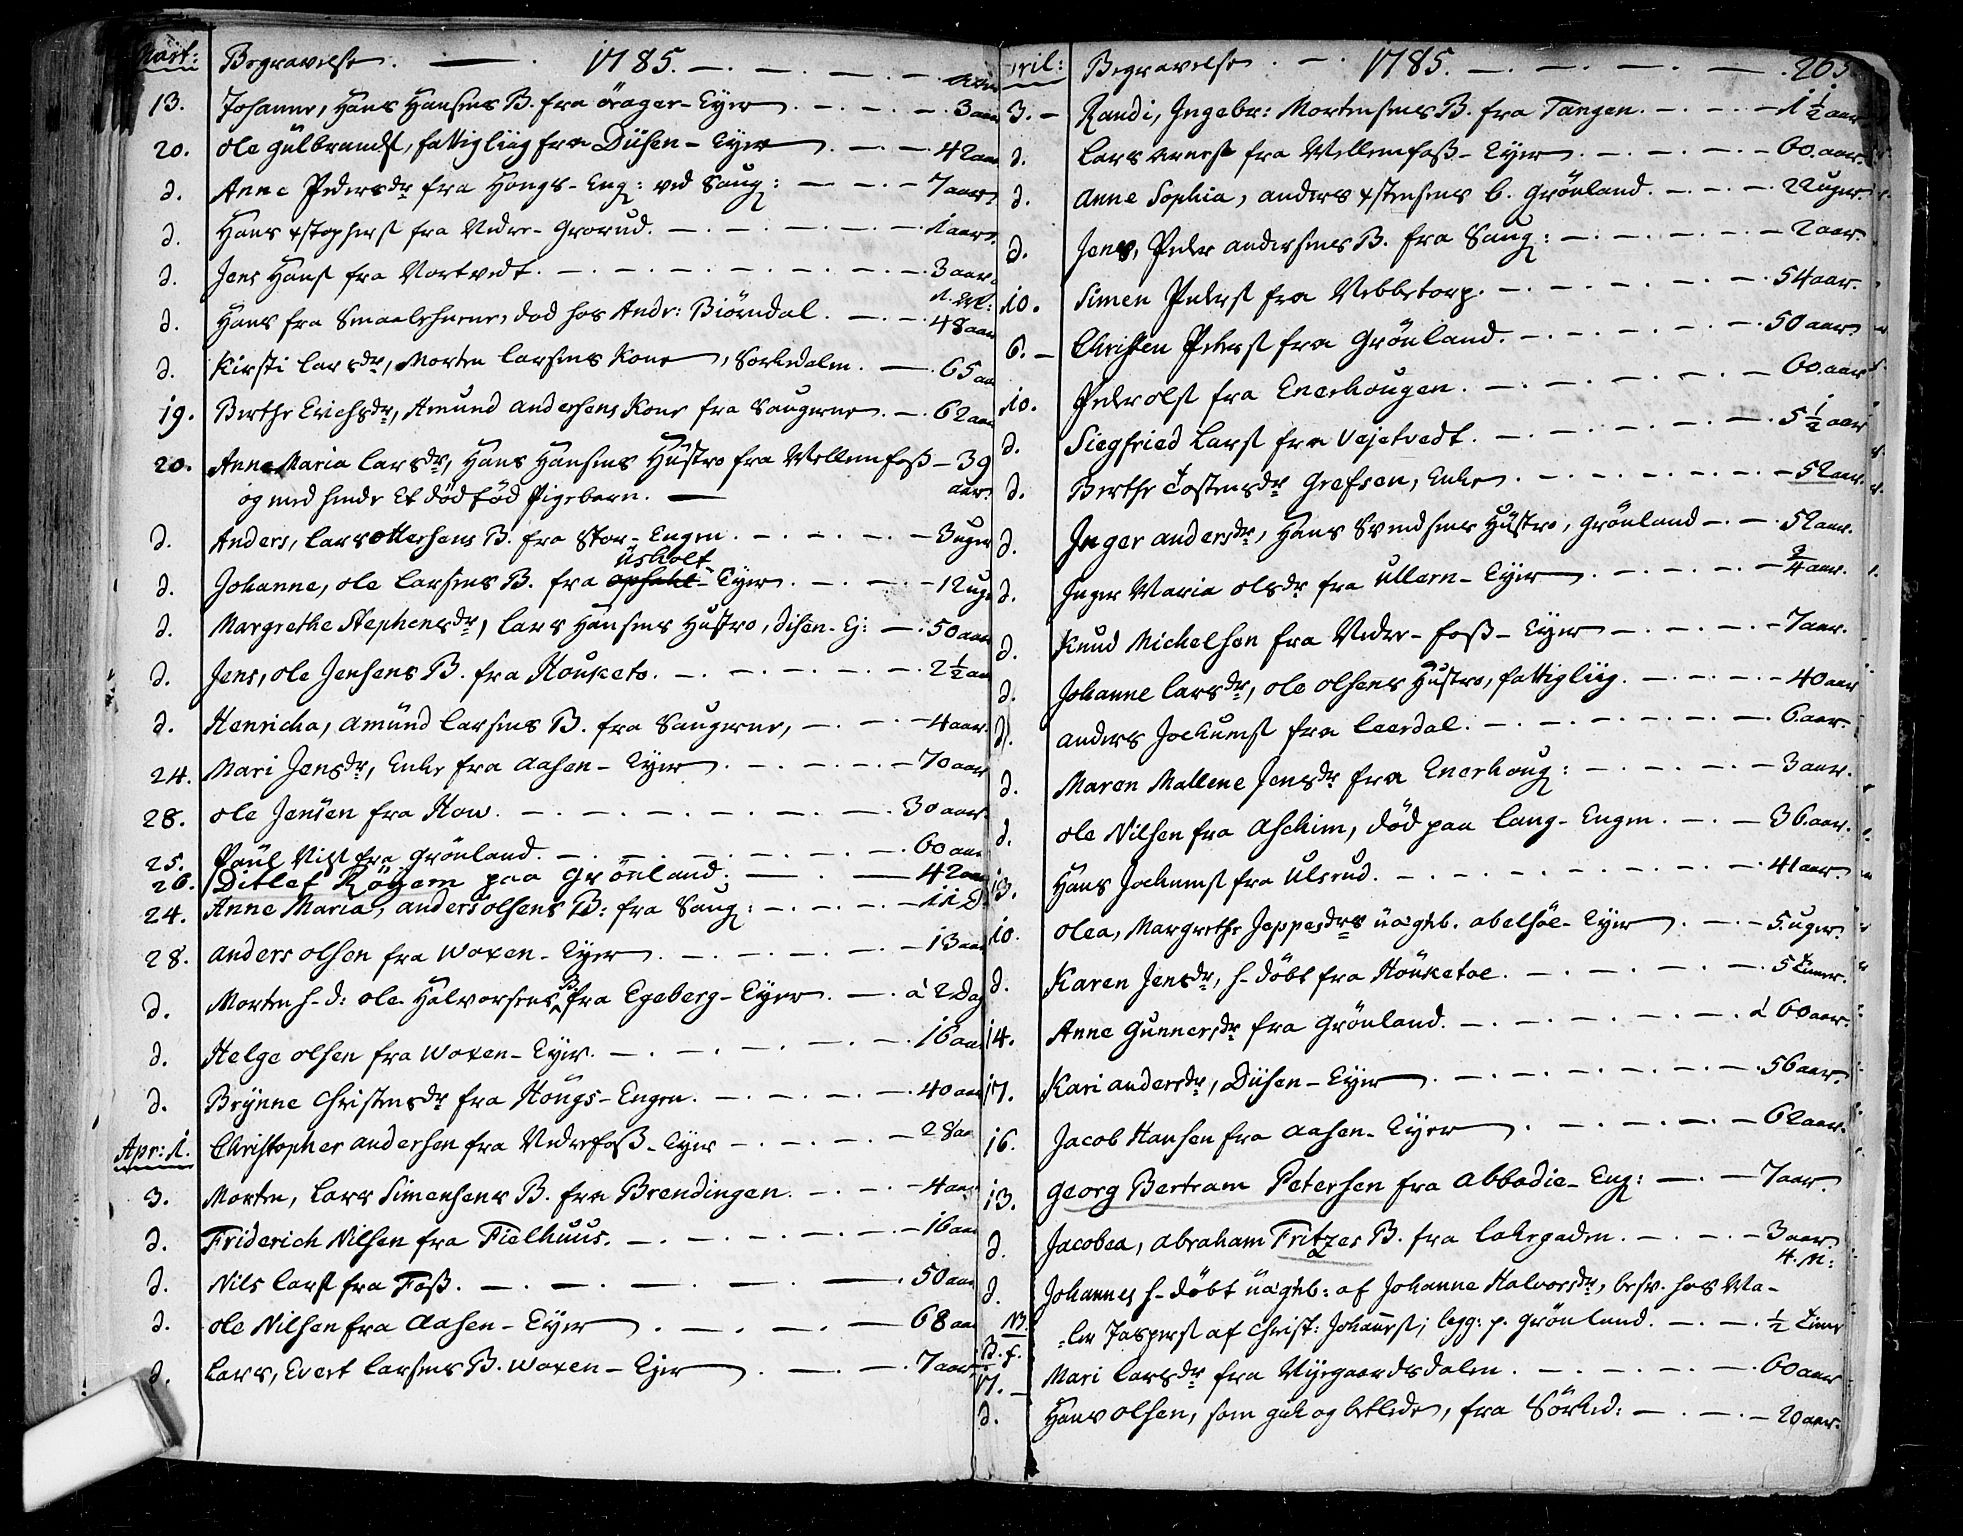 Mart: Begravelse. 1785.
13. Johanne, Hans Hansens B. fra Örager-Eyer 3 aar
20. Ole Gulbrands:, fattigliig fra Diisen-Eyer 42 aar
d. Anne Pedersdr fra Hougs-Eng: ved Saug: 7 aar
d. Hans Xstophers: fra Nedre-Grorud. 1 aar.
d. Jens Hans: fra Nortvedt. 3 aar. 1. M:
d. Hans fra Smaalehnene, död hos Andr: Biörndal. 48 aar
d. Kirsti Larsdr, Morten Larsens Kone, Sörkedalen. 65 aar
19. Berthe Erichsdr, Amund Andersens Kone fra Saugerne. 62 aar
20. Anne Maria Larsdr, Hans Hansens Hustro fra Mellemfoss 39
og med hende Et dödfød Pigebarn. aar
d. Anders, Lars Ottersens B. fra Stor-Engen. 3 uger
üsholt
d. Johanne, Ole Larsens B. fra Eyer. 12 uge
d. Margrethe Stephensdr, Lars Hansens Hustro, Disen-Ej: 50 aar
d. Jens, Ole Jensens B. fra Houketo. 2 1/2 aar
d. Henricha, Amund Larsens B. fra Saugerne, 4 aar.
24. Mari Jensdr, Enke fra Aasen-Eyer 70 aar
28. Ole Jensen fra How. 30 aar.
25. Poül Nils: fra Grönland. 60 aar
26. Ditlef Röyem paa Grönland. 42 aar
24. Anne Maria, Anders Olsens B: fra Saug: 11 D.
28. Anders Olsen fra Woxen-Eyer 13 aar
d. Morten h-d: Ole Halvorsens B. fra Egeberg-Eyer. á 2 Dag
d. Helge Olsen fra Woxen-Eyer. 16 aar
d. Brynne Christensdr fra Hougs-Engen. 40 aar
Apr: 1. Christopher Andersen fra Nedrefoss-Eyer 28 aar
3. Morten, Lars Simensens B. fra Brendingen. 4 aar
d. Friderich Nilsen fra Fielhuus. 16 aar
d. Nils Lars: fra Foss. 50 aar
d. Ole Nilsen fra Aasen-Eyer 68 aar
d. Lars, Evert Larsens B. Woxen-Ejer 7 aar
April: Begravelse. 1785. 265.
3. Randi, Ingebr: Mortensens B. fra Tangen. 1 1/2 aar
d. Lars Arnes: fra Mellemfoss-Eyer 60. aar.
d. Anne Sophia, Anders Xstensens b. Grönland. 22 uger.
d. Jens, Peder Andersens B. fra Saug: 2 aar.
10. Simen Peders: fra Nebbetorp. 54 aar.
6. Christen Peders: fra Grönland. 50 aar
10. Peder Ols: fra Enerhougen. 60. aar
d. Siegfried Lars: fra Vejetvedt. 5 1/2 aar
d. Berthe Tostensdr Grefsen, Enke 52 aar.
d. Inger Andersdr, Hans Svendsens Hustro, Grönland 52 aar.
d. Inger Maria Olsdr fra Ullern-Eyer 3/4 aar.
d. Knud Michelsen fra Nedre-Foss-Eyer 7 aar.
d. Johanne Larsdr, Ole Olsens Hustro, fattigliig. 40 aar
d. Anders Jochums: fra Leerdal. 6. aar.
d. Maren Mallene Jensdr fra Enerhoug: 3 aar.
d. Ole Nilsen fra Aschim, död paa Lang-Engen. 36. aar.
13. Hans Jochums: fra Ulsrud. 41 aar.
10. Olea, Margrethe Jeppesdrs uægteb. Abelsöe-Eyer 5. uger.
d. Karen Jensdr, h-döbt fra Houketoe. 5 Timer.
14. Anne Gunnersdr fra Grönland. á 60 aar.
17. Kari Andersdr, Diisen-Eyer 56 aar.
16. Jacob Hansen fra Aasen-Eyer 62 aar.
13. Georg Bertram Petersen fra Abbadie-Eng: 7 aar.
d. Jacobea, Abraham Fritzes B. fra Lakegaden. 3 aar. 4. M:
d. Johannes h-döbt uægteb: af Johanne Halvorsdr, besv. hos Ma-
N3. -ler Jaspers: af Christ: Johanns:; begg: p. Grönland. 1/2 Time
D. f.
17. Mari Larsdr fra Nyegaardsdalen. 60 aar
d. Hans Olsen, som gik og betlede, fra Sörked: 20 aar.